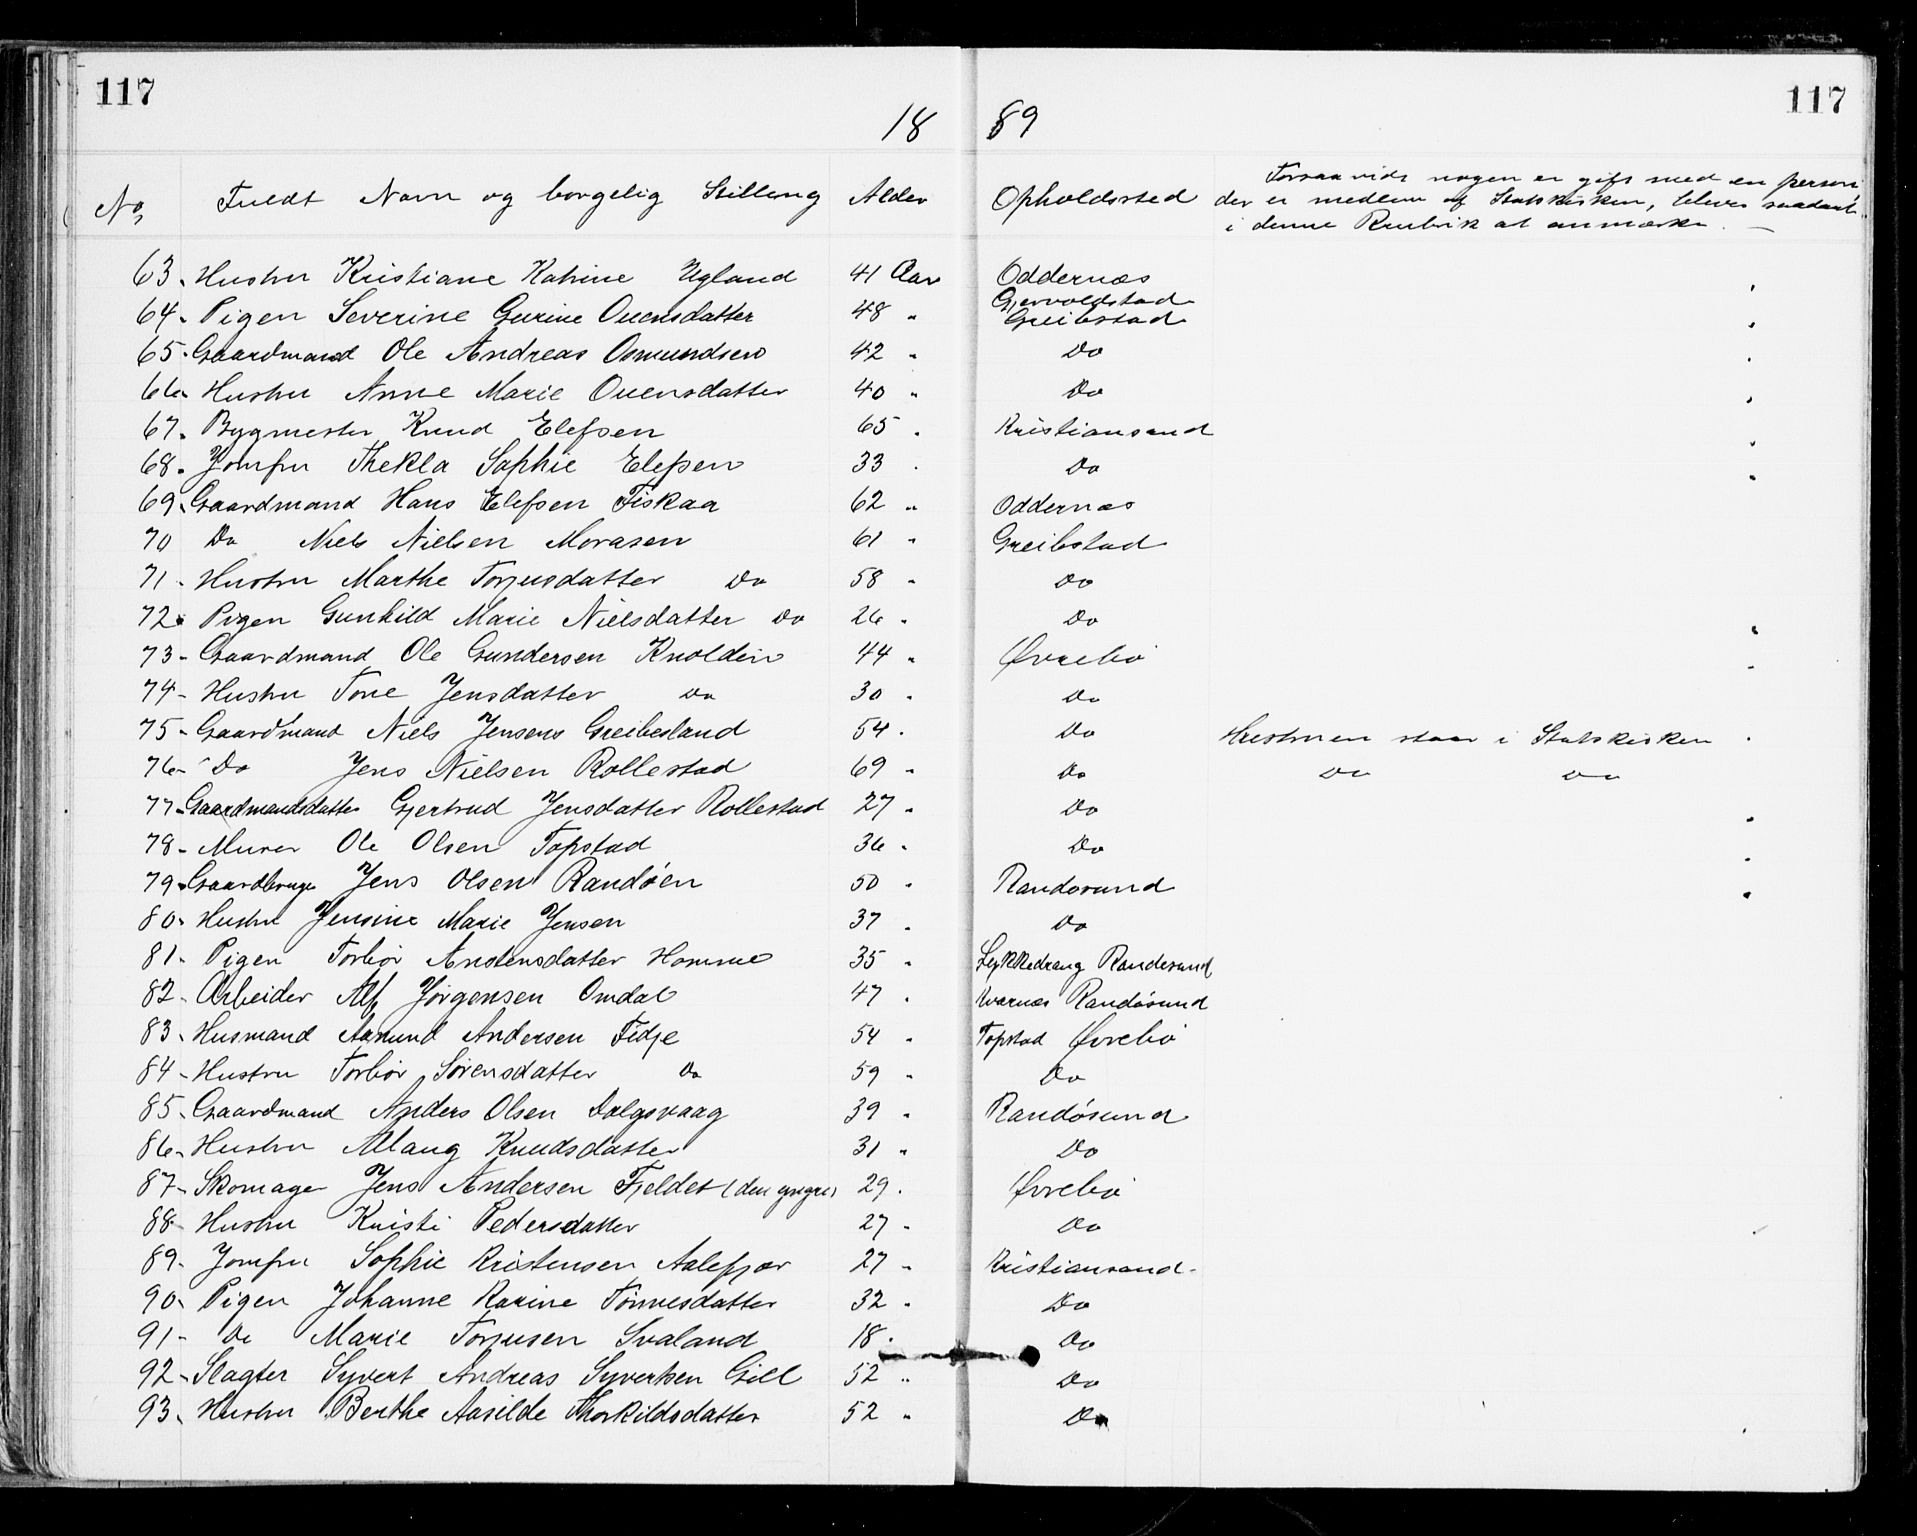 117 117
18 89
No, Fuldt Navn og borgelig Stilling Alder Opholdssted Forsaavidt nogen er gift med en person
der er medlem af Statskirken, bliver saadant
i denne Rubrik at anmærke. —
63. Hustru Kristiane Katrine Ugland 41 Aar Oddernæs
64. Pigen Severine Gurine Ouensdatter 48 " Gjervoldstad Greibstad
65. Gaardmand Ole Andreas Osmundsen 42 " Do
66. Hustru Anne Marie Ouensdatter 40 " Do
67. Bygmester Knud Elefsen 65 . Kristiansand
68. Jomfru Thekla Sophie Elefsen 33 . Do
69. Gaardmand Hans Elefsen Fiskaa 62 " Oddernæs
70 Do Niels Nielsen Morasen 61 " Greibstad
71 - Hustru Marthe Torjusdatter Do 58 " Do
72. Pigen Gunhild Marie Nielsdatter Do 26 " Do
73 - Gaardmand Ole Gundersen Knolden 44 " Øvrebø
74 - Hustru Tone Jensdatter Do 30 . Do
75 - Gaardmand Niels Jensens Greibesland 54 . Do Hustruen staar i Statskirken .
76 - Do Jens Nielsen Rollestad 69 " Do Do Do
77 - Gaardmandsdatter Gjertrud Jensdatter Rollestad 27 " Do
78 - Murer Ole Olsen Topstad 36 " Do
79. Gaardbruger Jens Olsen Randøen 50 " Randøsund
80. Hustru Jensine Marie Jensen 37 . Do
81 - Pigen Torbør Anstensdatter Homme 35 " Randesund
82 - Arbeider Alf Jørgensen Omdal 47 . Kvarnes Randøsund
83. Husmand Aanund Andersen Fidje 54 " Topstad Øvrebø
84 - Hustru Torbør Sørensdatter Do 59 " Do
85. Gaardmand Anders Olsen Dolgsvaag 39 " Randøsund
86. Hustru Allaug Knudsdatter 31 " Do
87 - Skomager Jens Andersen Fjeldet (den yngre) 29 . Øvrebø
88 - Hustru Kristi Pedersdatter 27 - Do
89 - Jomfru Sophie Kristensen Aalefjær 27 " Kristiansand -
90 - Pigen Johanne Karine Tønnesdatter 32 . Do
91 - Do Marie Torjusen Svaland 18 . Do
92 - Slagter Syvert Andreas Syvertsen Gill 52 " Do
93. Hustru Berthe Aasilde Thorkildsdatter 52 " Do